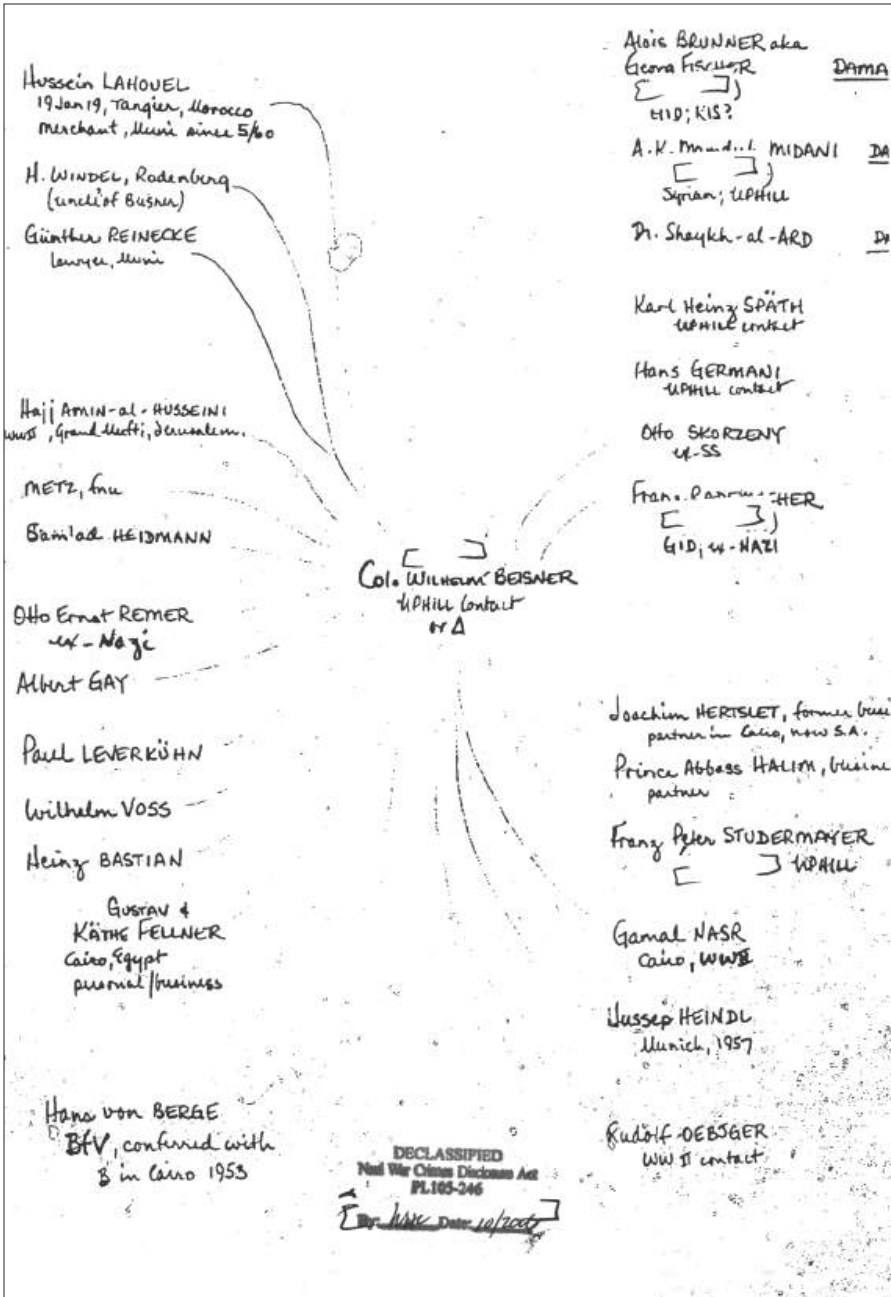 Hussein LAHOUEL
19 Jan 19, Tangier, Morocco
Merchant, Muni since 5/60
H. WINDEL, Rodenberg
(uncle of Beisner)
Günther REINECKE
Lawyer, Muni
Hajj AMIN-al-HUSSEINI
WWII, Grand Mufti, Jerusalem.
METZ, fnu
HEIDMANN
Otto Ernst REMER
ex-Nazi
Albert GAY
Paul LEVERKÜHN
Wilhelm VOSS
Heinz BASTIAN
GUSTAV &
KÄTHE FELLNER
Cairo, Egypt
personal/business
Hans von BERGE
BfV, conferred with
B in Cairo 1953
Col. WILHELM BEISNER
UPHILL Contact
or Δ
DECLASSIFIED
Nazi War Crimes Disclosure Act
PL105-246
By: Date:
Alois BRUNNER aka
Georg FISCHER
DAMA
HID; KIS?
A.K. MIDANI
DA
Syrian; UPHILL
Dr. Shaykh-al-ARD
DA
Karl Heinz SPÄTH
UPHILL contact
Hans GERMANI
UPHILL contact
Otto SKORZENY
ex-SS
HER
GID; ex-NAZI
Joachim HERTSLET, former busi
partner in Cairo, now S.A.
Prince Abbass HALIM, busine
partner
Franz Peter STUDERMAYER
UPHILL
Gamal NASR
Cairo, WWII
Jussep HEINDL
Munich, 1957
Rudolf OEBSGER
WW II contact